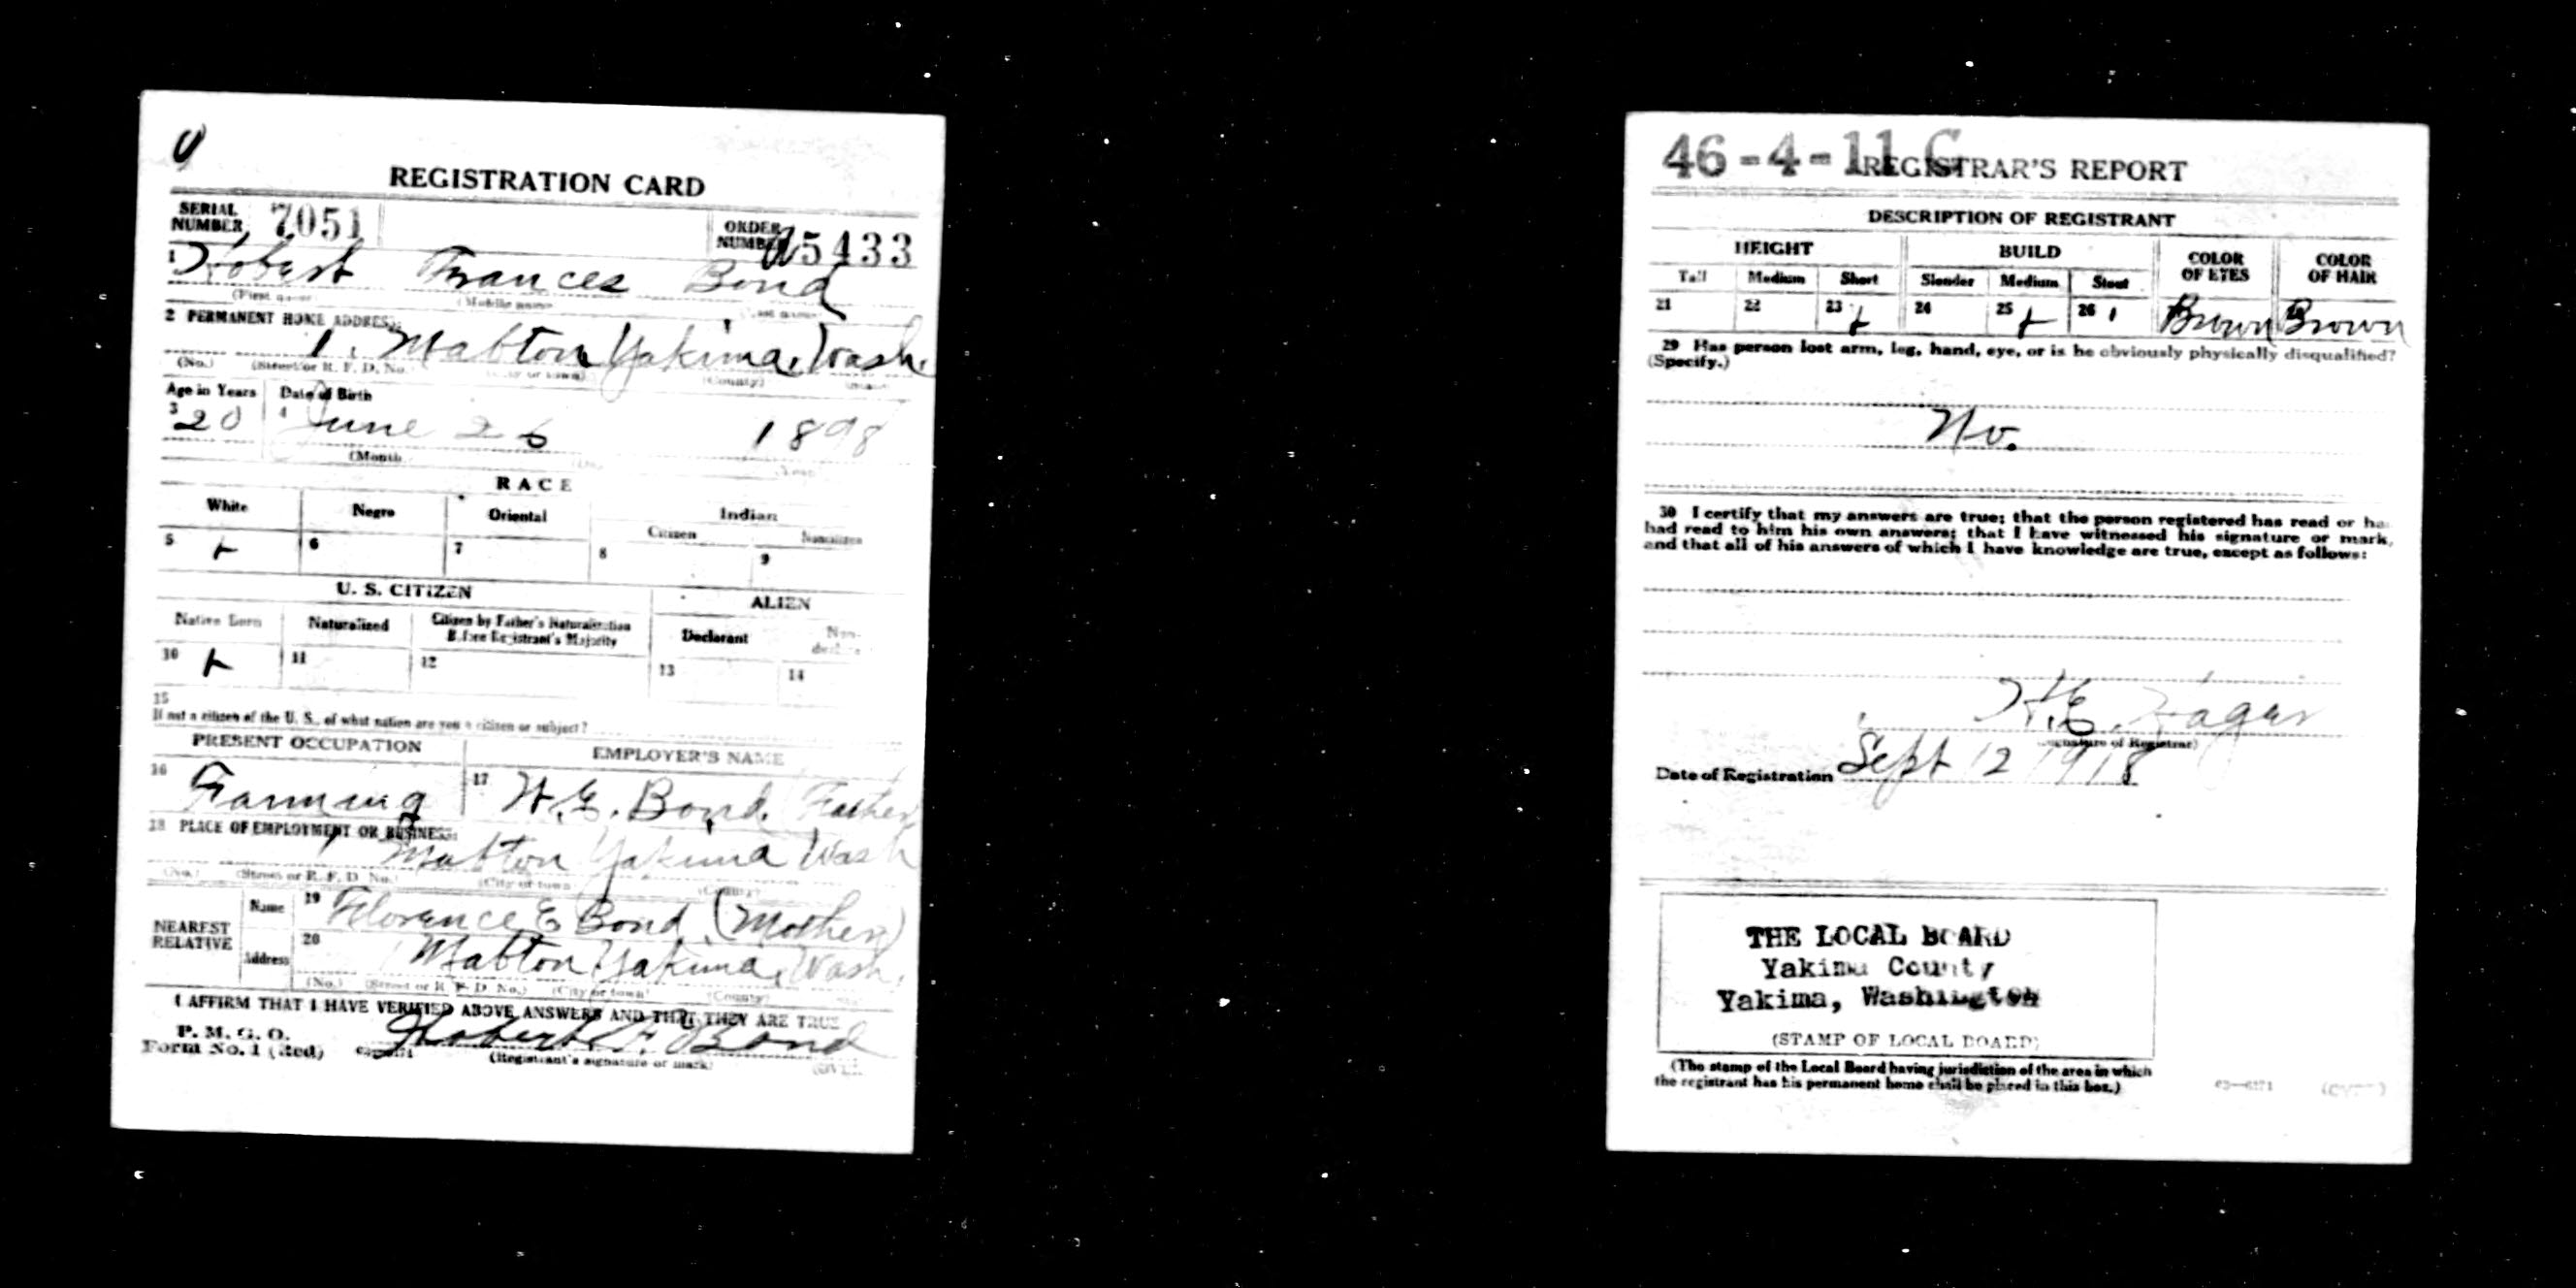 REGISTRATION CARD
SERIAL NUMBER 7051 ORDER NUMBER 5433
1 Hobert Frances Bond
(First name) (Middle name) (Last name)
2 PERMANENT HOME ADDRESS:
1. Mabton Yakima, Wash.
(No.) (Street or R. F. D. No.) (City or town) (County) (State)
Age in Years Date of Birth
3 20 4 June 26 1898
(Month) (Day) (Year)
RACE
White Negro Oriental Indian
Citizen Noncitizen
5 6 7 8 9
U. S. CITIZEN ALIEN
Native Born Naturalized Citizen by Father's Naturalization Before Registrant's Majority Declarant Non-declarant
10 11 12 13 14
15
If not a citizen of the U. S., of what nation are you a citizen or subject?
PRESENT OCCUPATION EMPLOYER'S NAME
16 Farming 17 H. E. Bond. Father
18 PLACE OF EMPLOYMENT OR BUSINESS:
Mabton Yakima Wash
(No.) (Street or R. F. D. No.) (City or town) (County)
NEAREST RELATIVE
Name 19 Florence E Bond (Mother)
Address 20 Mabton Yakima, Wash.
(No.) (Street or R. F. D. No.) (City or town) (County)
I AFFIRM THAT I HAVE VERIFIED ABOVE ANSWERS AND THAT THEY ARE TRUE
P. M. G. O.
Form No. 1 (Red) Hobert F. Bond
(Registrant's signature or mark) (OVER)
46-4-11 C
REGISTRAR'S REPORT
DESCRIPTION OF REGISTRANT
HEIGHT BUILD COLOR OF EYES COLOR OF HAIR
Tall Medium Short Slender Medium Stout
21 22 23 24 25 26 Brown Brown
29 Has person lost arm, leg, hand, eye, or is he obviously physically disqualified?
(Specify.)
No.
30 I certify that my answers are true; that the person registered has read or has
had read to him his own answers; that I have witnessed his signature or mark,
and that all of his answers of which I have knowledge are true, except as follows:
H. E.
(Signature of Registrar)
Date of Registration Sept 12 1918
THE LOCAL BOARD
Yakima County
Yakima, Washington
(STAMP OF LOCAL BOARD)
(The stamp of the Local Board having jurisdiction of the area in which
the registrant has his permanent home shall be placed in this box.)
03—6171 (OVER)